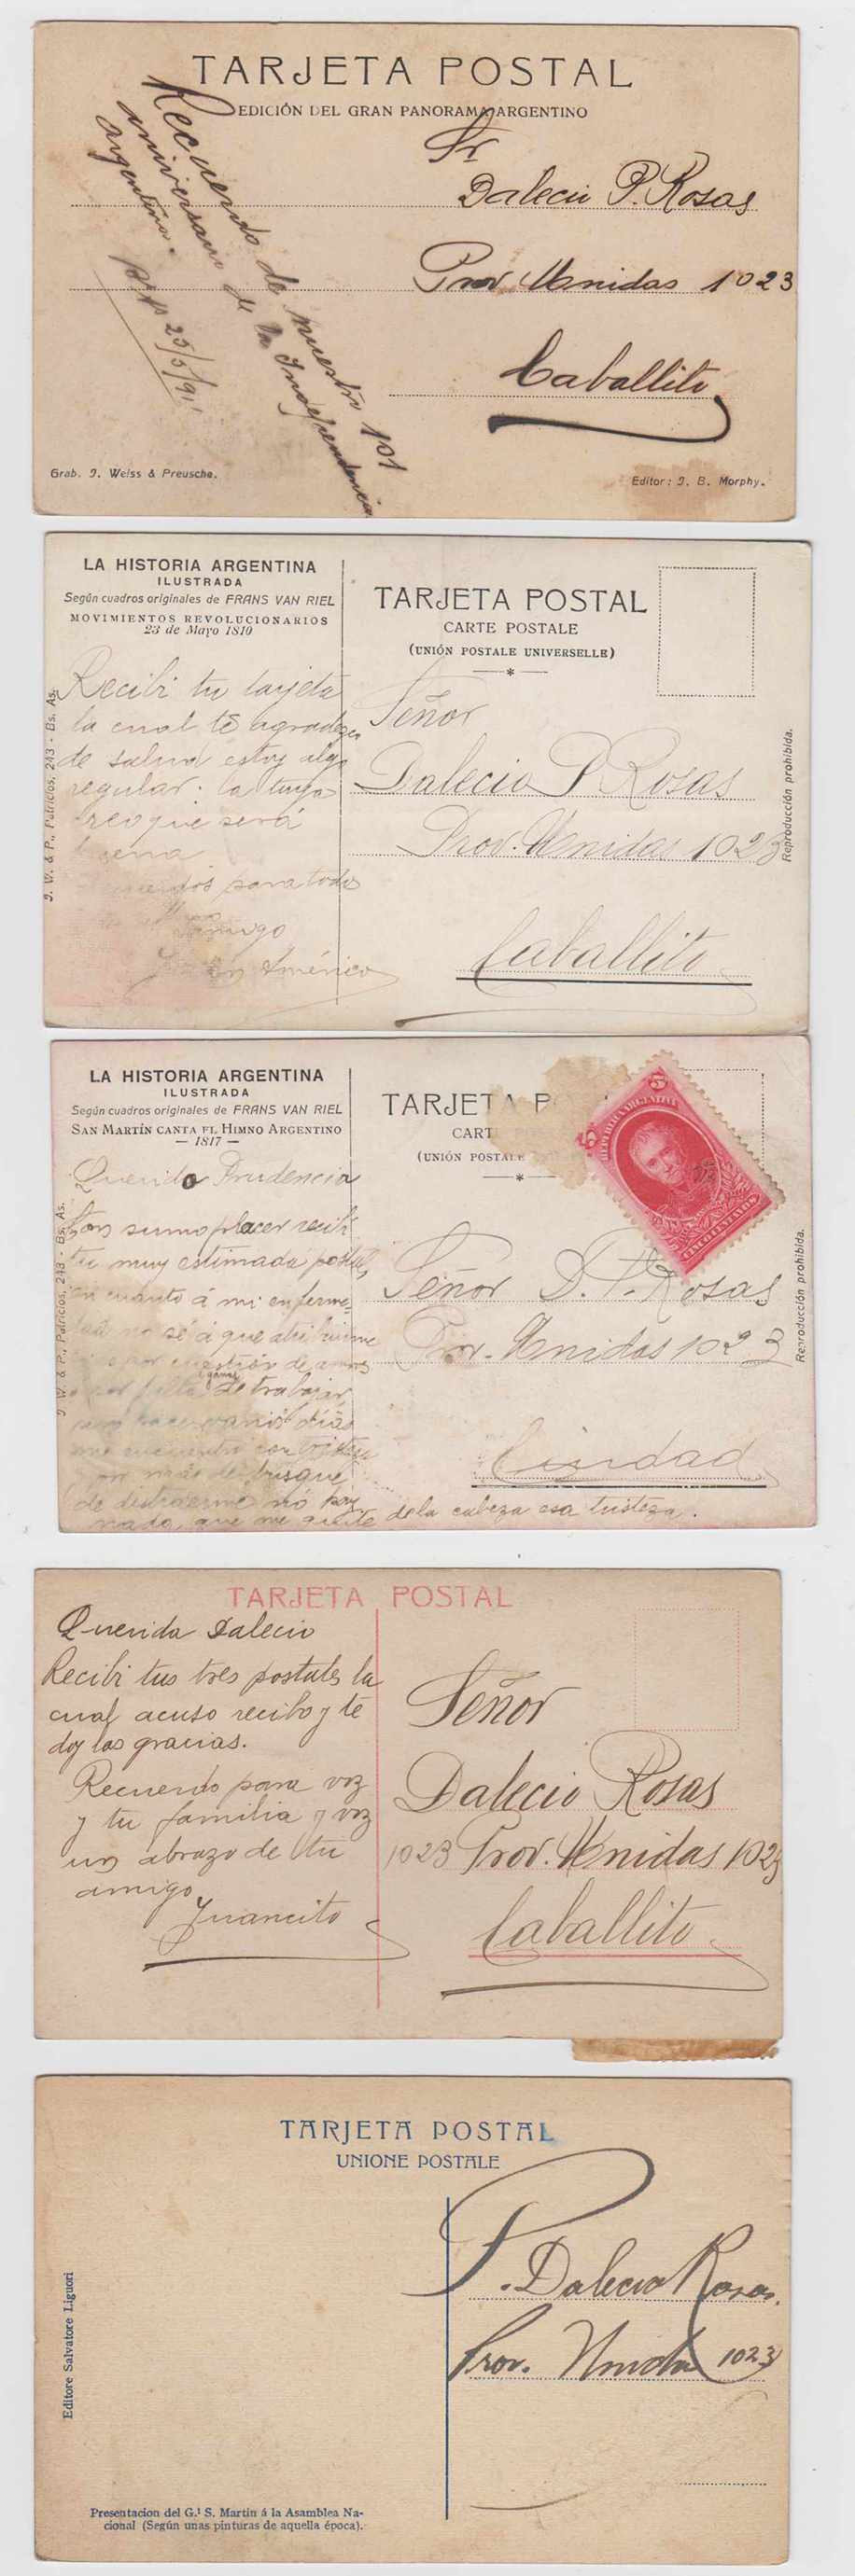 TARJETA POSTAL
EDICIÓN DEL GRAN PANORAMA ARGENTINO
Recuerdo de nuestro 101
aniversario de la Independencia
argentina.
25/5/911
Sr
Dalecio P. Rosas
Prov Unidas 1023
Caballito
Grab. J. Weiss & Preusche.
Editor: J. B. Morphy.
LA HISTORIA ARGENTINA
ILUSTRADA
Según cuadros originales de FRANS VAN RIEL
MOVIMIENTOS REVOLUCIONARIOS
23 de Mayo 1810
J. W. & P., Patricios, 243 - Bs. As.
Recibi tu tarjeta
la cual te agradezco
de salud estoy algo
regular. la tuya
creo que será
buena
para todos
Tu amigo
América
TARJETA POSTAL
CARTE POSTALE
(UNIÓN POSTALE UNIVERSELLE)
Señor
Dalecio P Rosas
Prov. Unidas 1023
Caballito
Reproducción prohibida.
LA HISTORIA ARGENTINA
ILUSTRADA
Según cuadros originales de FRANS VAN RIEL
SAN MARTÍN CANTA EL HIMNO ARGENTINO
— 1817 —
J. W. & P., Patricios, 243 - Bs. As.
Querido Prudencia
Con sumo placer recibi
tu muy estimada postal,
en cuanto á mi enferme-
dad no sé á que atribuirme
si es por cuestión de amores
o por falta ganas de trabajar,
pero hace varios días
me encuentro con tristeza
por más de busque
de distraerme nó hay
nada, que me quite de la cabeza esa tristeza.
TARJETA P
CART
(UNIÓN POSTALE
5
5
REPUBLICA ARGENTINA
CINCO CENTAVOS
Señor D. P. Rosas
Prov. Unidas 1023
Ciudad
Reproducción prohibida.
TARJETA POSTAL
Querida Dalecio
Recibi tus tres postales la
cual acuso recibo y te
doy las gracias.
Recuerdo para voz
y tu familia y voz
un abrazo de tu
amigo
Juancito
Señor
Dalecio Rosas
1023 Prov. Unidas 1023
Caballito
TARJETA POSTAL
UNIONE POSTALE
Editore Salvatore Liguori
P. Dalecio Rosas.
Prov. Unida 1023
Presentacion del G.¹ S. Martin á la Asamblea Na-
cional (Según unas pinturas de aquella época).